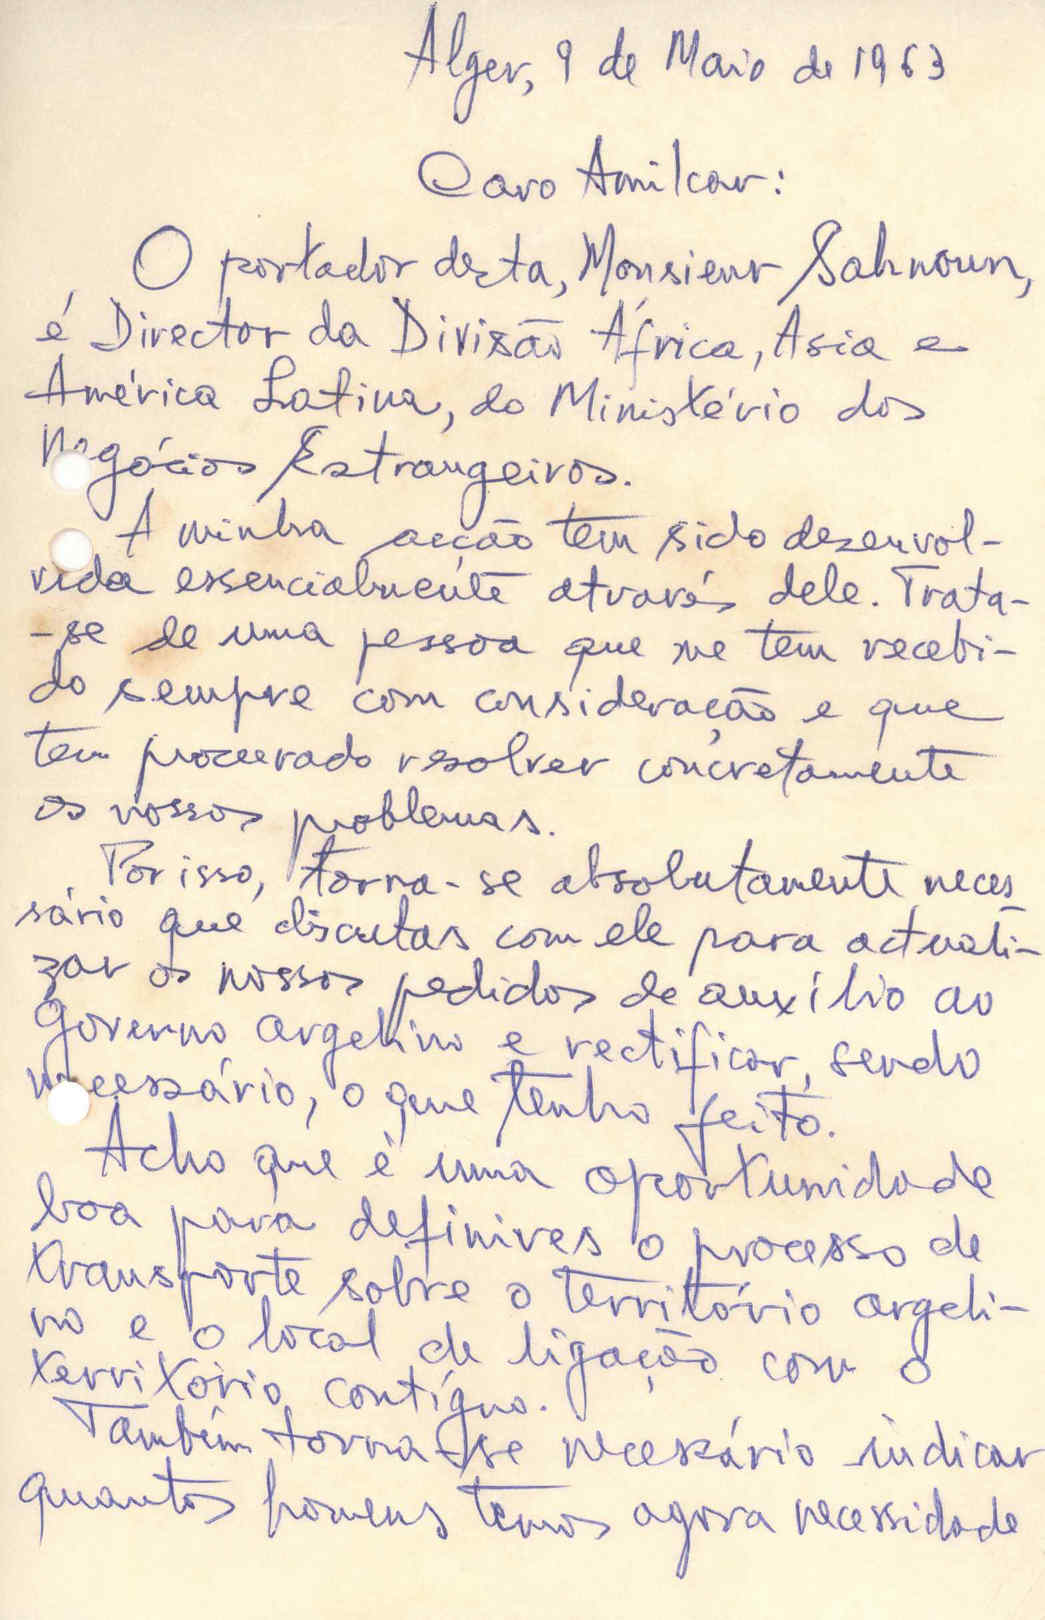 Alger, 9 de Maio de 1963
Caro Amilcar:
O portador desta, Monsieur Sahnoun,
é Director da Divisão África, Asia e
América Latina, do Ministério dos
Negócios Estrangeiros.
A minha acção tem sido desenvol-
vida essencialmente através dele. Trata-
-se de uma pessoa que me tem recebi-
do sempre com consideração e que
tem procurado resolver concretamente
os nossos problemas.
Por isso, torna-se absolutamente neces
sário que discutas com ele para actuali-
zar os nossos pedidos de auxílio ao
Governo argelino e rectificar, sendo
necessário, o que tenho feito.
Acho que é uma oportunidade
boa para definires o processo de
transporte sobre o território argeli-
no e o local de ligação com o
território contíguo.
Também torna-se necessário indicar
quantos homens temos agora necessidade